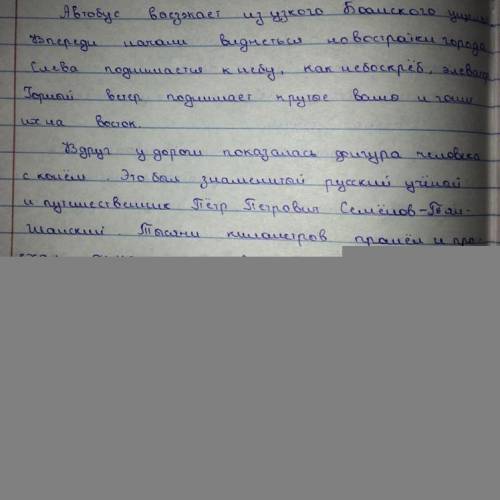 Автобус выезжает из узкого Боамского ущелья
Впереди начали виднеться новостройки города
Слева поднимается к небу, как небоскрёб, элеватор
Горный ветер поднимает крутые волны и гонит
их на восток.
Вдруг у дороги показалась фигура человека
с конём. Это был знаменитый русский учёный
и путешественник Пётр Петрович Семёнов-Тян-
Шанский. Тысячи километров прошёл и про-